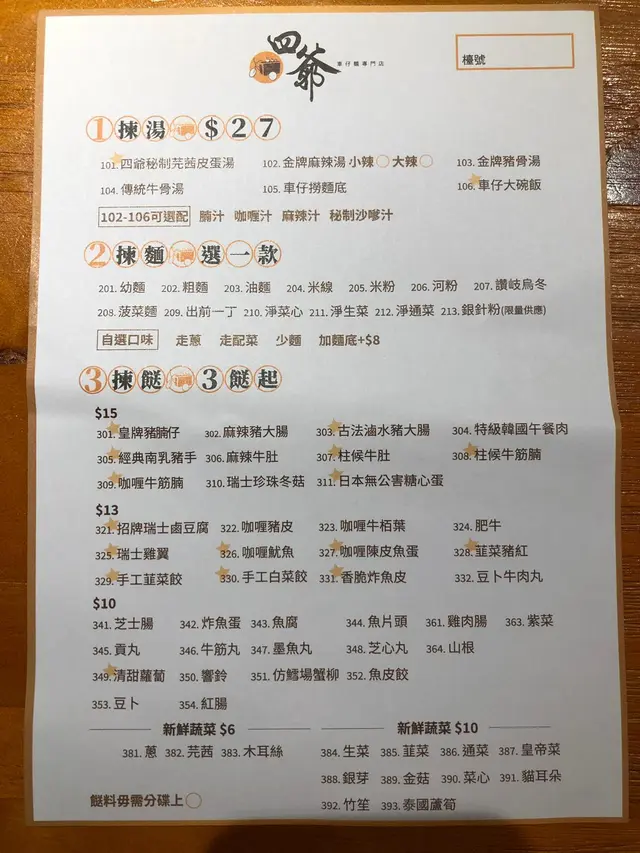 四爺
車仔麵專門店
檯號
1 揀湯 $27
101. 四爺秘制芫茜皮蛋湯 102. 金牌麻辣湯 小辣 大辣 103. 金牌豬骨湯
104. 傳統牛骨湯 105. 車仔撈麵底 106. 車仔大碗飯
102-106可選配 腩汁 咖喱汁 麻辣汁 秘制沙嗲汁
2 揀麵 選一款
201. 幼麵 202. 粗麵 203. 油麵 204. 米線 205. 米粉 206. 河粉 207. 讚岐烏冬
208. 菠菜麵 209. 出前一丁 210. 淨菜心 211. 淨生菜 212. 淨通菜 213. 銀針粉(限量供應)
自選口味 走蔥 走配菜 少麵 加麵底+$8
3 揀餸 3餸起
$15
301. 皇牌豬腩仔 302. 麻辣豬大腸 303. 古法滷水豬大腸 304. 特級韓國午餐肉
305. 經典南乳豬手 306. 麻辣牛肚 307. 柱候牛肚 308. 柱候牛筋腩
309. 咖喱牛筋腩 310. 瑞士珍珠冬菇 311. 日本無公害糖心蛋
$13
321. 招牌瑞士鹵豆腐 322. 咖喱豬皮 323. 咖喱牛栢葉 324. 肥牛
325. 瑞士雞翼 326. 咖喱魷魚 327. 咖喱陳皮魚蛋 328. 韮菜豬紅
329. 手工韮菜餃 330. 手工白菜餃 331. 香脆炸魚皮 332. 豆卜牛肉丸
$10
341. 芝士腸 342. 炸魚蛋 343. 魚腐 344. 魚片頭 361. 雞肉腸 363. 紫菜
345. 貢丸 346. 牛筋丸 347. 墨魚丸 348. 芝心丸 364. 山根
349. 清甜蘿蔔 350. 響鈴 351. 仿鱈場蟹柳 352. 魚皮餃
353. 豆卜 354. 紅腸
新鮮蔬菜 $6 新鮮蔬菜 $10
381. 蔥 382. 芫茜 383. 木耳絲 384. 生菜 385. 韮菜 386. 通菜 387. 皇帝菜
388. 銀芽 389. 金菇 390. 菜心 391. 貓耳朵
餸料毋需分碟上 392. 竹笙 393. 泰國蘆筍